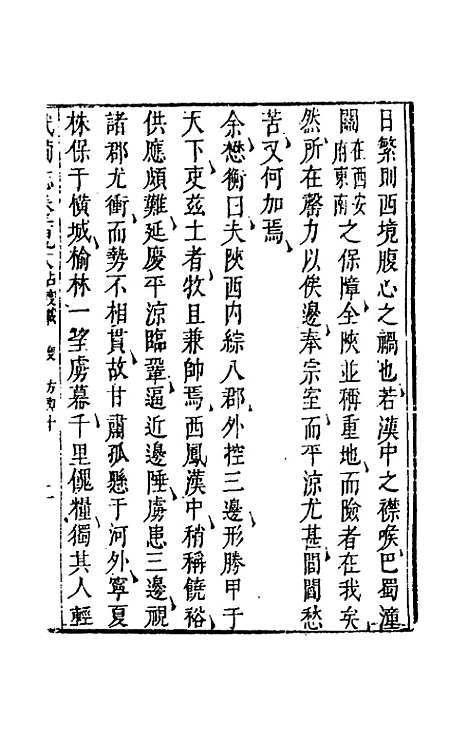 日繁則西境腹心之禍也若漢中之襟喉巴蜀潼
關在西安府東南之保障全陝並稱重地而險者在我矣
然所在罄力以俟邊奉宗室而平涼尤甚閭閻愁
苦又何加焉
余懋衡曰夫陝西内綜八郡外控三邊形勝甲于
天下吏兹土者牧且兼帥焉西鳳漢中稍稱饒裕
供應頗難延慶平涼臨鞏逼近邊陲虜患三邊視
諸郡尤衝而勢不相貫故甘肅孤懸于河外寧夏
株保于横城榆林一望虜幕千里餽糧獨其人輕
武備志卷
占度載 度 方輿十